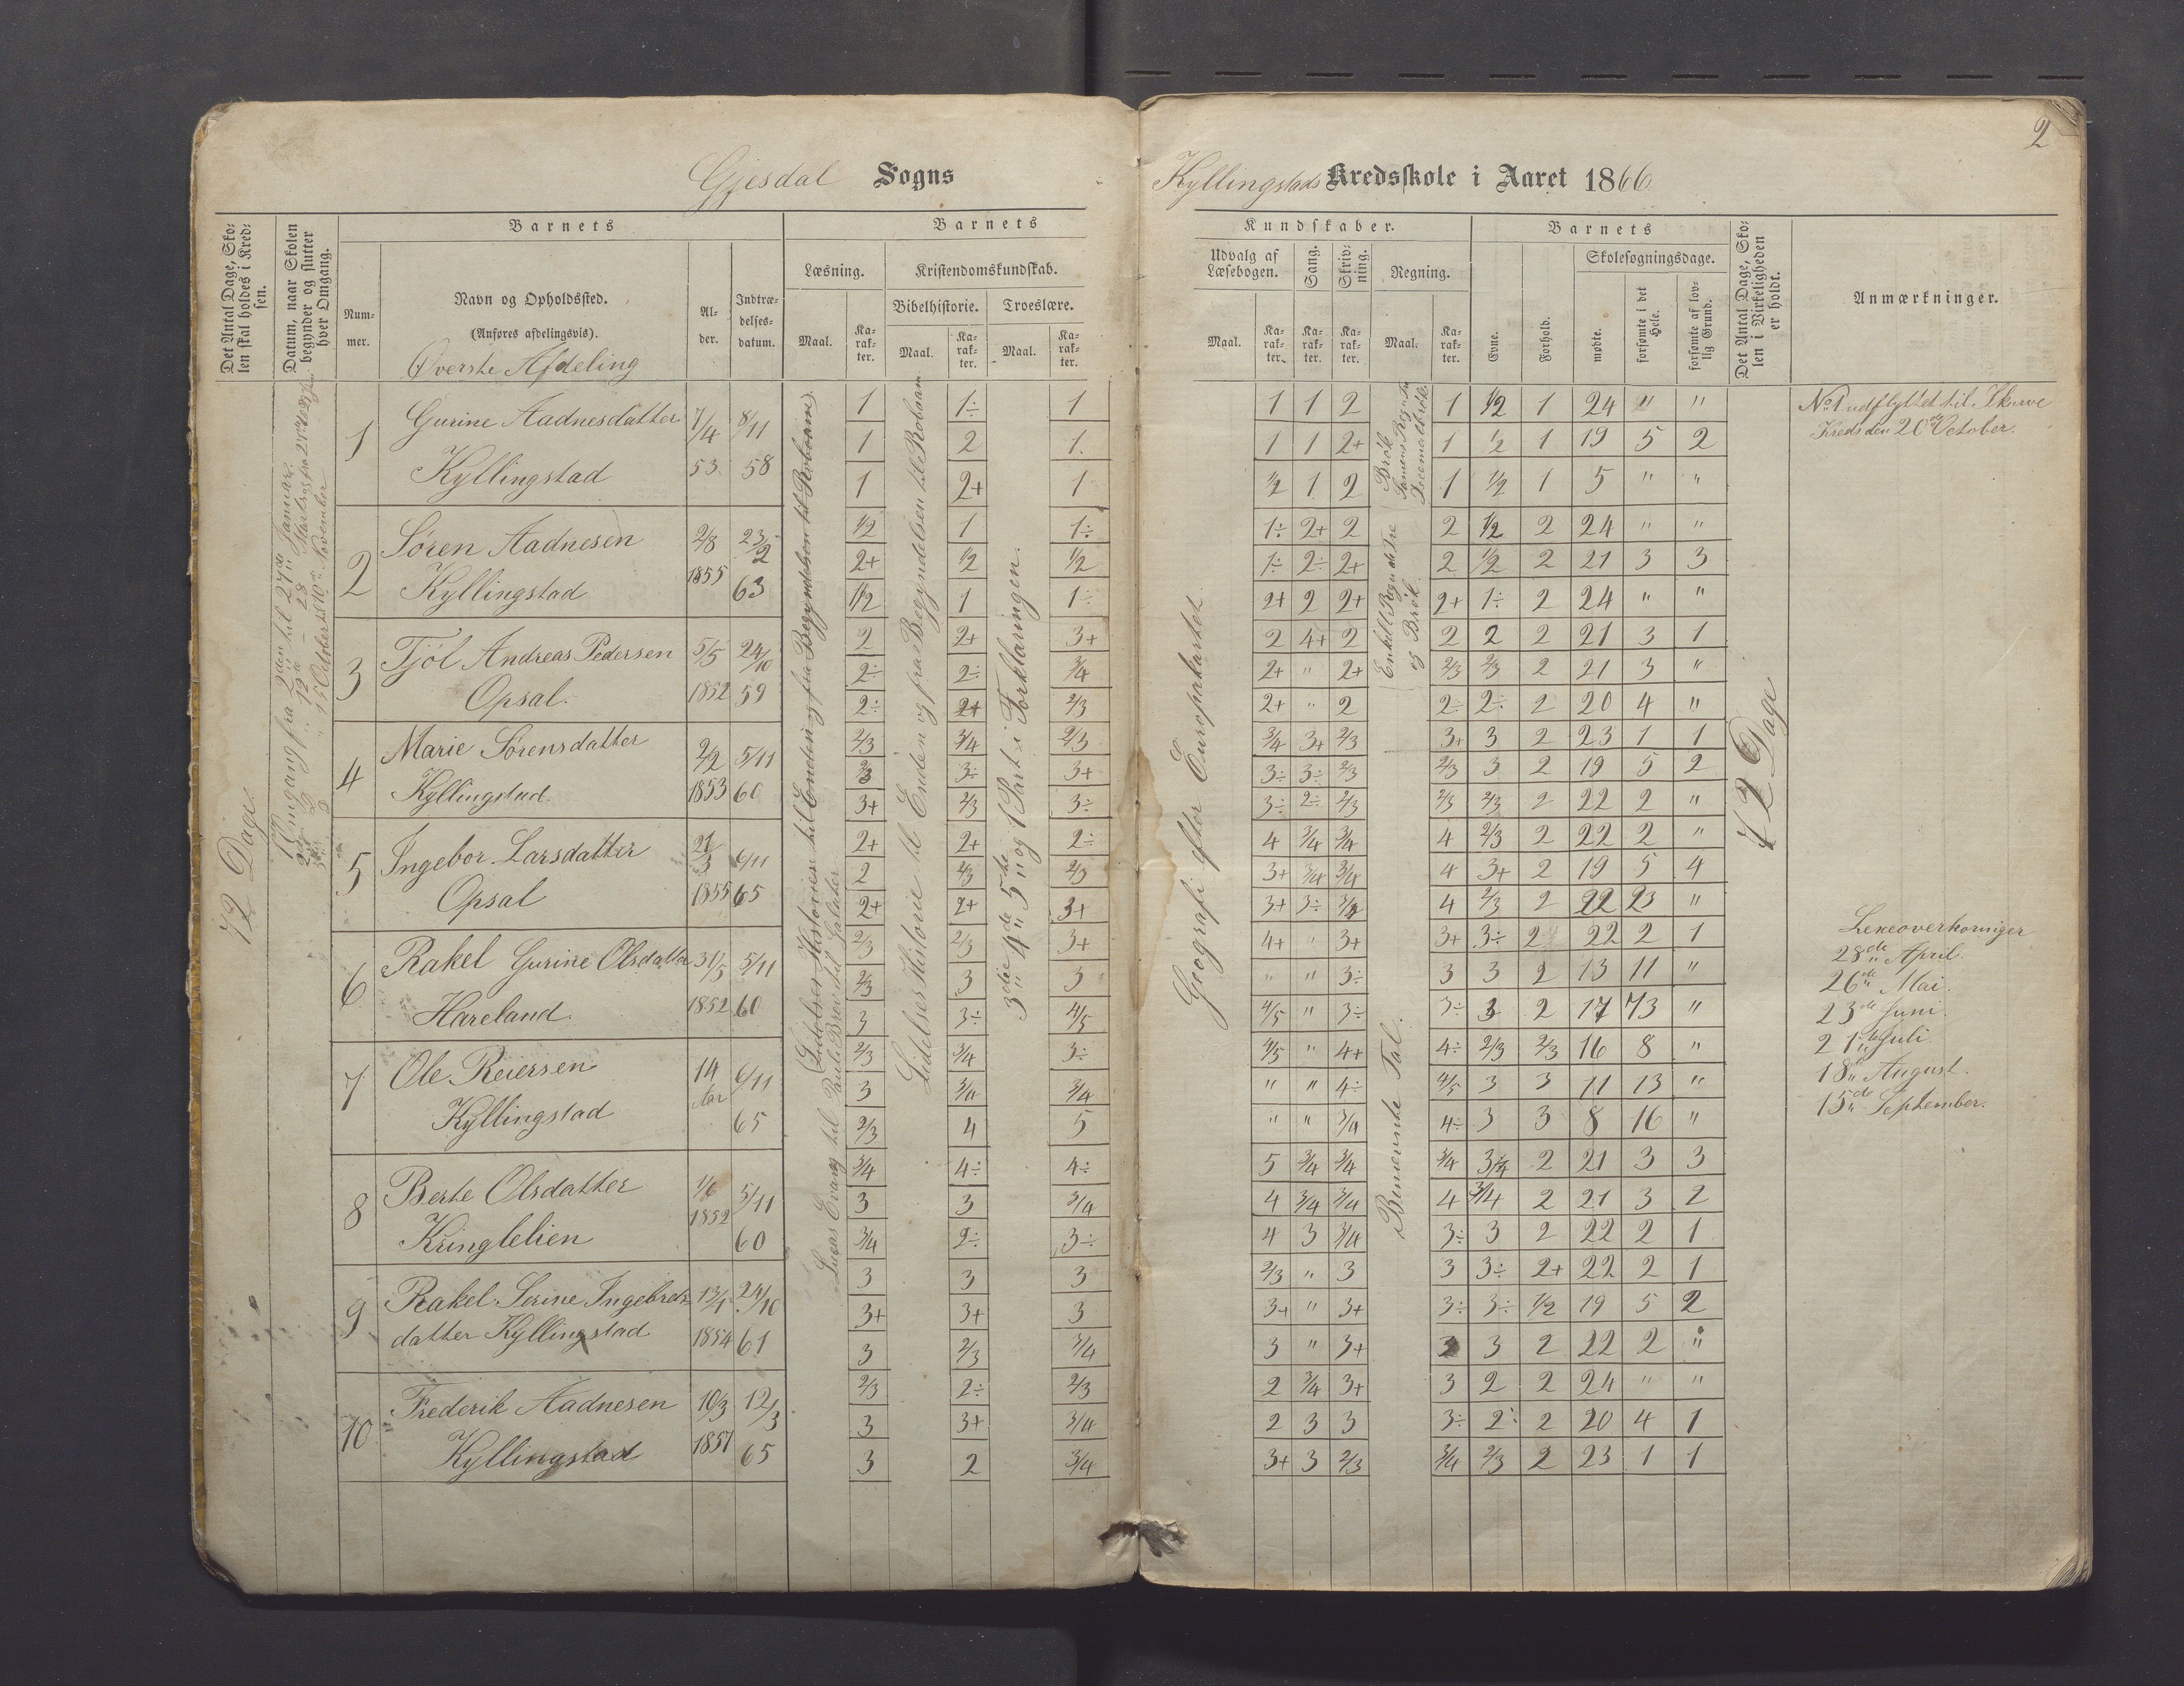 2
Gjesdal Sogns
Kyllingstads Kredsskole i Aaret 1866
Det Antal Dage, Sko-
len skal holdes i Kred-
sen.
Datum, naar Skolen
begynder og slutter
hver Omgang.
Barnets
Num-
mer.
Navn og Opholdssted.
(Anføres afdelingsvis).
Øverste Afdeling
Al-
der.
Indtræ-
delses-
datum.
Barnets
Læsning.
Maal.
Ka-
rak-
ter.
Kristendomskundskab.
Bibelhistorie.
Maal.
Ka-
rak-
ter.
Troeslære.
Maal.
Ka-
rak-
ter.
Kundskaber.
Udvalg af
Læsebogen.
Maal.
Ka-
rak-
ter.
Sang.
Ka-
rak-
ter.
Skriv-
ning.
Ka-
rak-
ter.
Regning.
Maal.
Ka-
rak-
ter.
Barnets
Evne.
Forhold.
Skolesøgningsdage.
mødte.
forsømte i det
Hele.
forsømte af lov-
lig Grund.
Det Antal Dage, Sko-
len i Virkeligheden
er holdt.
Anmærkninger.
72 Dage.
1 Gurine Aadnesdatter 7/4 8/11
Kyllingstad 53 58
2 Søren Aadnesen 2/8 23/2
Kyllingstad 1855 63
3 Tjøl Andreas Pedersen 5/5 24/10
Opsal. 1852 59
4 Marie Sørensdatter 2/2 5/11
Kyllingstad. 1853 60
5 Ingebor Larsdatter 21/3 6/11
Opsal 1855 65
6 Rakel Gurine Olsdatter 31/5 5/11
Hareland. 1852 60
7 Ole Reiersen 14 Aar 6/11
Kyllingstad 65
8 Berte Olsdatter 1/6 5/11
Kringlelien 1852 60
9 Rakel Serine Ingebrets- 13/1 24/10
datter Kyllingstad 1854 61
10 Frederik Aadnesen 10/3 12/3
Kyllingstad 1851 65
Lidelses Historie til Enden og fra Begyndelsen til Roboam
3die 4de 5te og 1 Part i Forklaringen.
Geografi efter Europakartet
Benævnte Tal.
Enkel Regu de Tre
og Brøk.
1 1÷ 1
1 2 1.
1 2+ 1
1/2 1 1÷
2+ 1/2 1/2
1/2 1 1÷
2 2+ 3+
2÷ 2÷ 3/4
2÷ 2+ 2/3
2/3 3/4 2/3
2/3 3÷ 3+
3+ 2/3 3÷
2+ 2+ 2÷
2 2/3 2/3
2+ 2+ 3+
2/3 2/3 3+
2/3 3 3
3 3÷ 4/5
2/3 3/4 3÷
3 3/4 3/4
2/3 4 5
3/4 4÷ 4÷
3 3 3/4
3/4 2÷ 3÷
3 3 3
3+ 3+ 3
3 2/3 3/4
2/3 2÷ 2/3
3 3+ 3/4
3 2 3/4
1 1 2 1 1/2 1 24 " "
1 1 2+ 1 1/2 1 19 5 2
1/2 1 2 1 1/2 1 5 " "
1÷ 2+ 2 2 1/2 2 24 " "
1÷ 2÷ 2+ 2 1/2 2 21 3 3
2+ 2 2+ 2+ 1÷ 2 24 " "
2 4+ 2 2 2 2 21 3 1
2+ " 2+ 2/3 2/3 2 21 3 "
2+ " 2 2÷ 2÷ 2 20 4 "
3/4 3+ 2/3 3+ 3 2 23 1 1
3÷ 3÷ 2/3 2/3 3 2 19 5 2
3÷ 2÷ 2/3 2/3 2/3 2 22 2 "
4 3/4 3/4 4 2/3 2 22 2 "
3+ 3/4 3/4 4 3+ 2 19 5 4
3+ 3÷ 3/4 4 2/3 2 22 23 "
4+ " 3+ 3+ 3÷ 2 22 2 1
" " 3÷ 3 3 2 13 11 "
4/5 " 3÷ 3÷ 3 2 17 73 "
4/5 " 4+ 4÷ 2/3 2/3 16 8 "
" " 4÷ 4/5 3 3 11 13 "
" " 3/4 4÷ 3 3 8 16 "
5 3/4 3/4 3/4 3/4 2 21 3 3
4 3/4 3/4 4 3/4 2 21 3 2
4 3 3/4 3÷ 3 2 22 2 1
2/3 " 3 3 3÷ 2+ 22 2 1
3+ " 3+ 3÷ 3÷ 1/2 19 5 2
3 " 3+ 3 3 2 22 2 "
2 3/4 3+ 3 2 2 24 " "
2 3 3 3÷ 2÷ 2 20 4 1
3+ 3 2/3 3/4 2/3 2 23 1 1
72 Dage
No 1 udflyttet til Skurve
Kreds den 20de October.
Lexeoverhøringer
28de April.
26de Mai.
23de Juni.
21de Juli
18de August.
15de September.